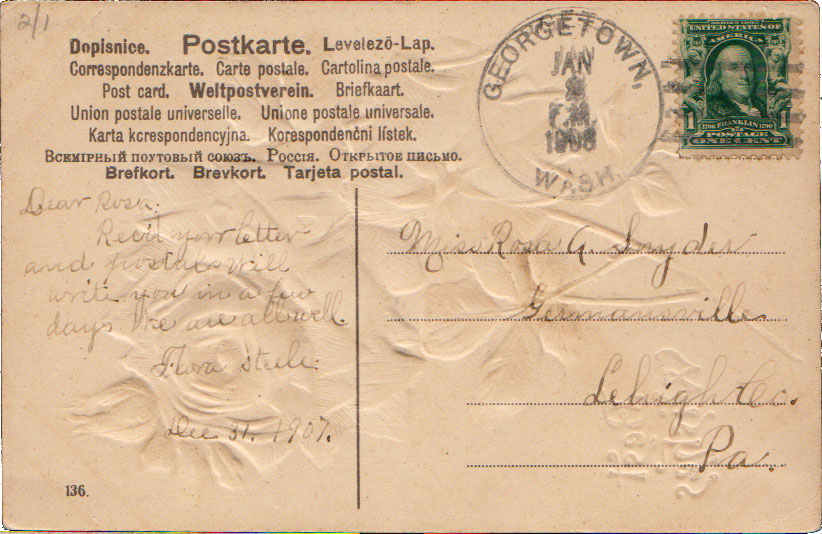 2/1
Dopisnice. Postkarte. Levelezö-Lap.
Correspondenzkarte. Carte postale. Cartolina postale.
Post card. Weltpostverein. Briefkaart.
Union postale universelle. Unione postale universale.
Karta kcrespondencyjna. Korespondenční lístek.
Всемірный поутовый союзъ. Россія. Открытое письмо.
Brefkort. Brevkort. Tarjeta postal.
GEORGETOWN,
JAN
P.M.
1908
WASH.
SERIES 1902
UNITED STATES OF
AMERICA
1 1706 FRANKLIN 1790 1
POSTAGE
ONE CENT
Dear Rosa:
Rec'd your letter
and postals will
write you in a few
days We are all well.
Flora Steele.
Dec 31. 1907.
Miss Rosa A. Snyder
Germansville
Lehigh Co.
Pa.
136.